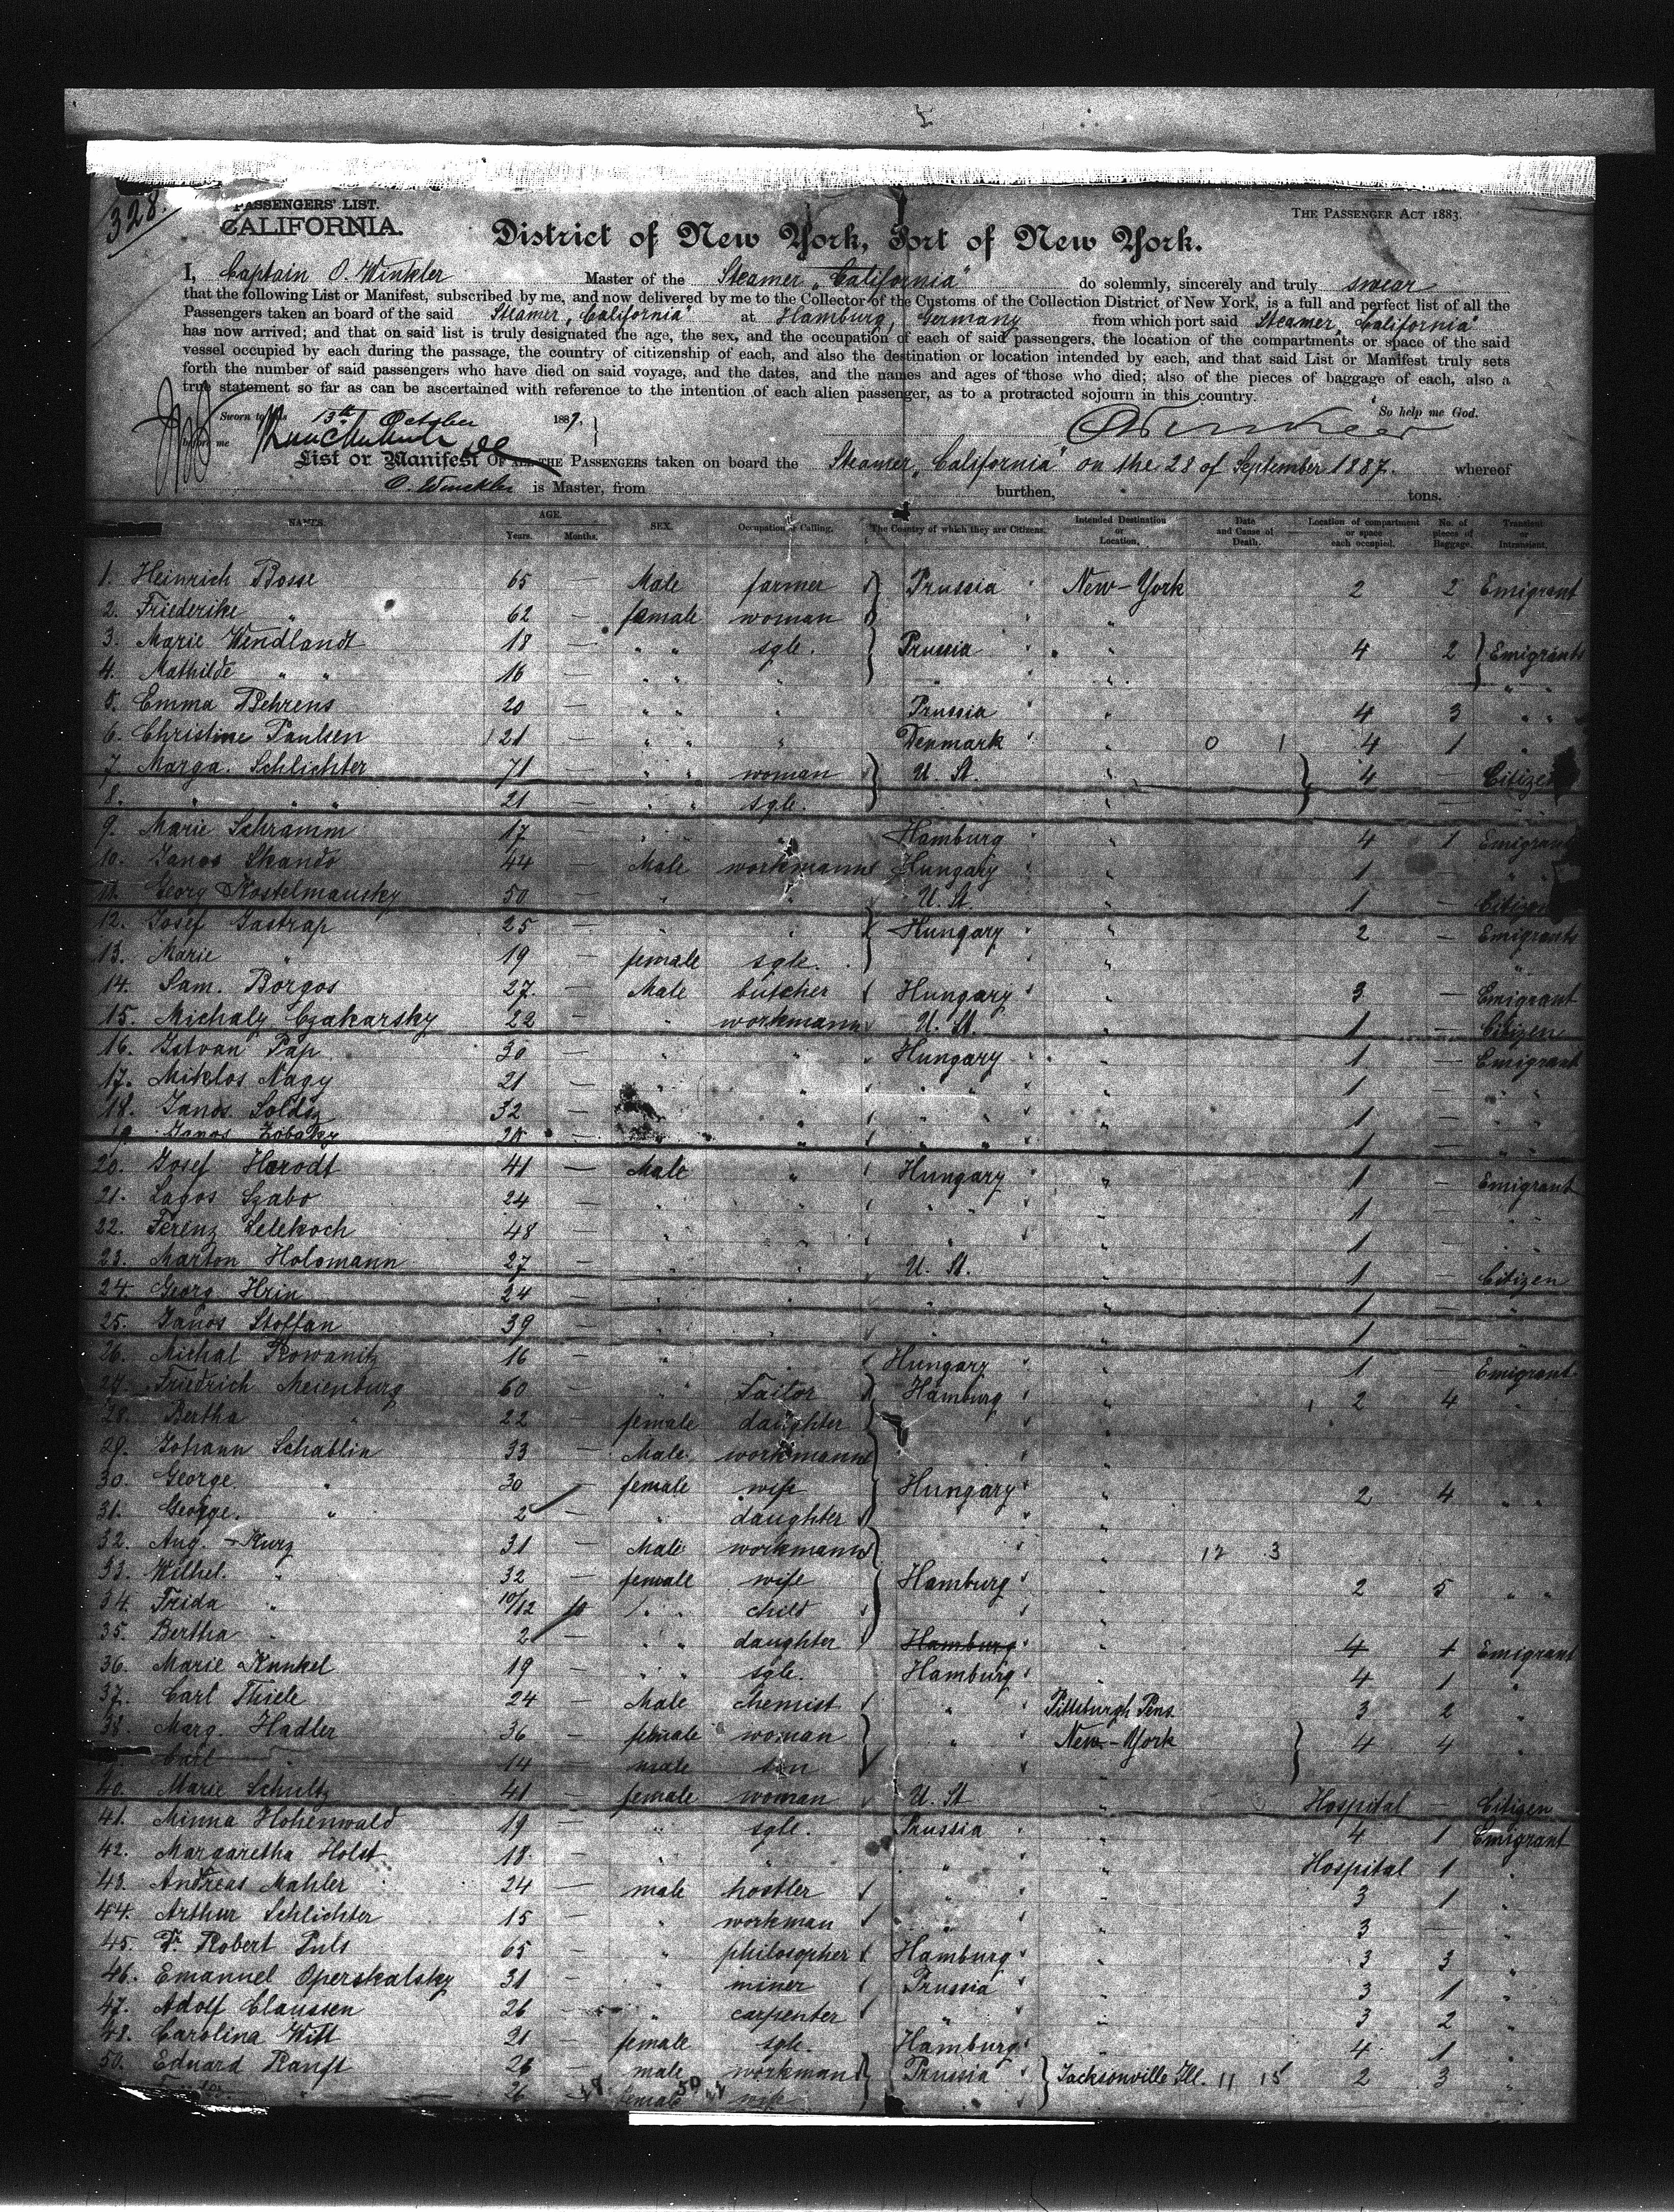 328.
PASSENGERS' LIST.
CALIFORNIA.
THE PASSENGER ACT 1883.
District of New York, Port of New York.
I, Captain O. Winkler Master of the Steamer „California" do solemnly, sincerely and truly swear
that the following List or Manifest, subscribed by me, and now delivered by me to the Collector of the Customs of the Collection District of New York, is a full and perfect list of all the
Passengers taken an board of the said Steamer „California" at Hamburg, Germany from which port said Steamer „California"
has now arrived; and that on said list is truly designated the age, the sex, and the occupation of each of said passengers, the location of the compartments or space of the said
vessel occupied by each during the passage, the country of citizenship of each, and also the destination or location intended by each, and that said List or Manifest truly sets
forth the number of said passengers who have died on said voyage, and the dates, and the names and ages of those who died; also of the pieces of baggage of each, also a
true statement so far as can be ascertained with reference to the intention of each alien passenger, as to a protracted sojourn in this country.
So help me God.
Sworn to this 13th October 1887.
before me
List or Manifest OF ALL THE PASSENGERS taken on board the Steamer „California" on the 28 of September 1887. whereof
O. Winckler is Master, from burthen, tons.
NAMES. AGE. Years. Months. SEX. Occupation or Calling. The Country of which they are Citizens. Intended Destination or Location. Date and Cause of Death. Location of compartment or space each occupied. No. of pieces of Baggage. Transient or Intransient.
1. Heinrich Bosse 65 — Male farmer Prussia New-York 2 2 Emigrant
2. Friederike " 62 — female woman "
3. Marie Wendlandt 18 — " " sgle. Prussia " 4 2 Emigrants
4. Mathilde " " 16 — " " " " " "
5. Emma Behrens 20 — " " " Prussia " 4 3 " "
6. Christine Paulsen 21 — " " " Denmark " 0 1 4 1 "
7. Marga. Schlichter 71 — " " woman U. St. " 4 — Citizen
8. " " " 21 — " " sgle. " —
9. Marie Schramm 17 — " " " Hamburg " 4 1 Emigrant
10. Janos Skando 44 — Male workmann Hungary " 1 — " "
11. Georg Kostelmansky 50 — " " U. St. " 1 — Citizen
12. Josef Jastrap 25 — " " Hungary " 2 — Emigrants
13. Marie " 19 — female sgle. " "
14. Sam. Borgos 27. — Male butcher Hungary " 3 — Emigrant
15. Michaly Czakarsky 22 — " workmann U. St. " 1 — Citizen
16. Istvan Pap 30 — " " Hungary " 1 — Emigrant
17. Miklos Nagy 21 — " " " " " 1 — " "
18. Janos Soldiz 32 — " " " " 1 — "
19. Janos Zobaky 28 — " " " " 1 — " "
20. Josef Harodt 41 — Male " Hungary " 1 — Emigrant
21. Lagos Szabo 24 — " " " " " 1 — " "
22. Ferenz Lelekoch 48 — " " " " 1 — " "
23. Marton Holomann 27 — " " U. St. " 1 — Citizen
24. Georg Hrin 24 — " " " " 1 — "
25. Janos Stoffan 39 — " " " " 1 — "
26. Michal Kowanitz 16 — " " Hungary " 1 — Emigrant
27. Friedrich Meienburg 60 — " Tailor Hamburg " 2 4 " "
28. Bertha " 22 — female daughter "
29. Johann Schablin 33 — Male workmann "
30. George " 30 — female wife Hungary " 2 4 " "
31. George. " 2 — " daughter "
32. Aug. Kurz 31 — Male workmann " 12 3
33. Wilhel. " 32 — female wife Hamburg " 2 5 " "
34. Frida " 10/12 10 " " child "
35. Bertha " 2 — " " daughter Hamburg " 4 1 Emigrant
36. Marie Kunkel 19 — " " sgle. Hamburg " 4 1 "
37. Carl Thiele 24 — Male chemist " Pittsburgh Pens. 3 2 "
38. Marg. Hadler 36 — female woman " New-York 4 4 "
Carl " 14 — male son "
40. Marie Schultz 41 — female woman U. St. " Hospital — Citizen
41. Minna Hohenwald 19 — " sgle. Prussia " 4 1 Emigrant
42. Margaretha Holst 18 — " " " " Hospital 1 "
43. Andreas Mahler 24 — male hostler " " 3 1 "
44. Arthur Schlichter 15 — " workman " " 3 — "
45. Dr. Robert Puls 65 — " philosopher Hamburg " 3 3 "
46. Emanuel Operskalsky 31 — " miner Prussia " 3 1 "
47. Adolf Claussen 26 — " carpenter " " 3 2 "
48. Carolina Witt 21 — female sgle. Hamburg " 4 1 "
50. Eduard Ranft 26 — male workman Prussia Jacksonville Ill. 11 15 2 3 "
26 — female wife